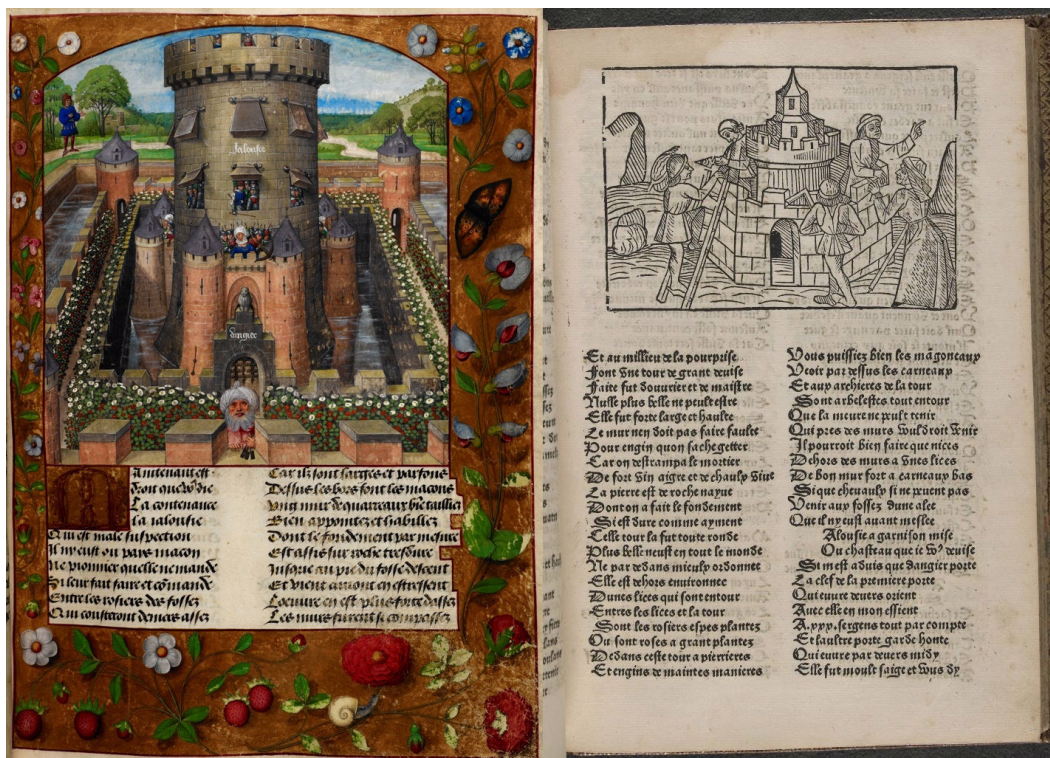 Jalousie
Dangier
aintenant est
Droit que vo⁹ die
La contenance
la ialousie
Qui est male suspection
Il ny eust ou pays macon
Ne pionnier quelle ne mande
Si leur fait faire et cōmande
Entre les rosiers des fossez
Qui cousteront deniers assez
Car ilz sont larges et parfons
Dessus les bors font les macons
Vng mur de quarreaux biē tailliez
Bien appointez et habillez
Dont le fondement par mesure
Est assis sur roche tresdure
Jusque au pie du fosse descent
Et vient amont en estressent
Loeuure en est plus forte dassez
Les murs furent si compassez
Et au millieu de la pourprise
Font vne tour de grant deuise
Faite fut douurier et de maistre
Nulle plus belle ne peult estre
Elle fut forte large et haulte
Le mur nen doit pas faire faulte
Pour engin quon sache getter
Car on destrampa le mortier
De fort vin aigre et de chaulx viue
La pierre est de roche nayue
Dont on a fait le fondement
Si est dure comme ayment
Celle tour la fut toute ronde
Plus belle neust en tout le monde
Ne par dedans mieulx ordonnee
Elle est dehors enuironnee
Dunes lices qui sont entour
Entres les lices et la tour
Sont les rosiers espes plantez
Ou sont roses a grant plantez
Dedans ceste tour a pierrieres
Et engins de maintes manieres
Vous puissiez bien les magoneaux
Veoir par dessus les carneaux
Et aux archieres de la tour
Sont arbelestes tout entour
Que la meure ne peult tenir
Qui pres des murs vouldroit venir
Il pourroit bien faire que nices
Dehors des murs a vnes lices
De bon mur fort a carneaux bas
Si que cheuaulx si ne peuent pas
Venir aux fossez dune alee
Que il ny eust auant meslee
Alousie a garnison mise
Ou chasteau que ie vo⁹ deuise
Si mest aduis que dangier porte
La clef de la premiere porte
Qui euure deuers orient
Auec elle en mon essient
A .xxx. sergens tout par compte
Et laultre porte garde honte
Qui euure par deuers midy
Elle fut moult saige et vous dy